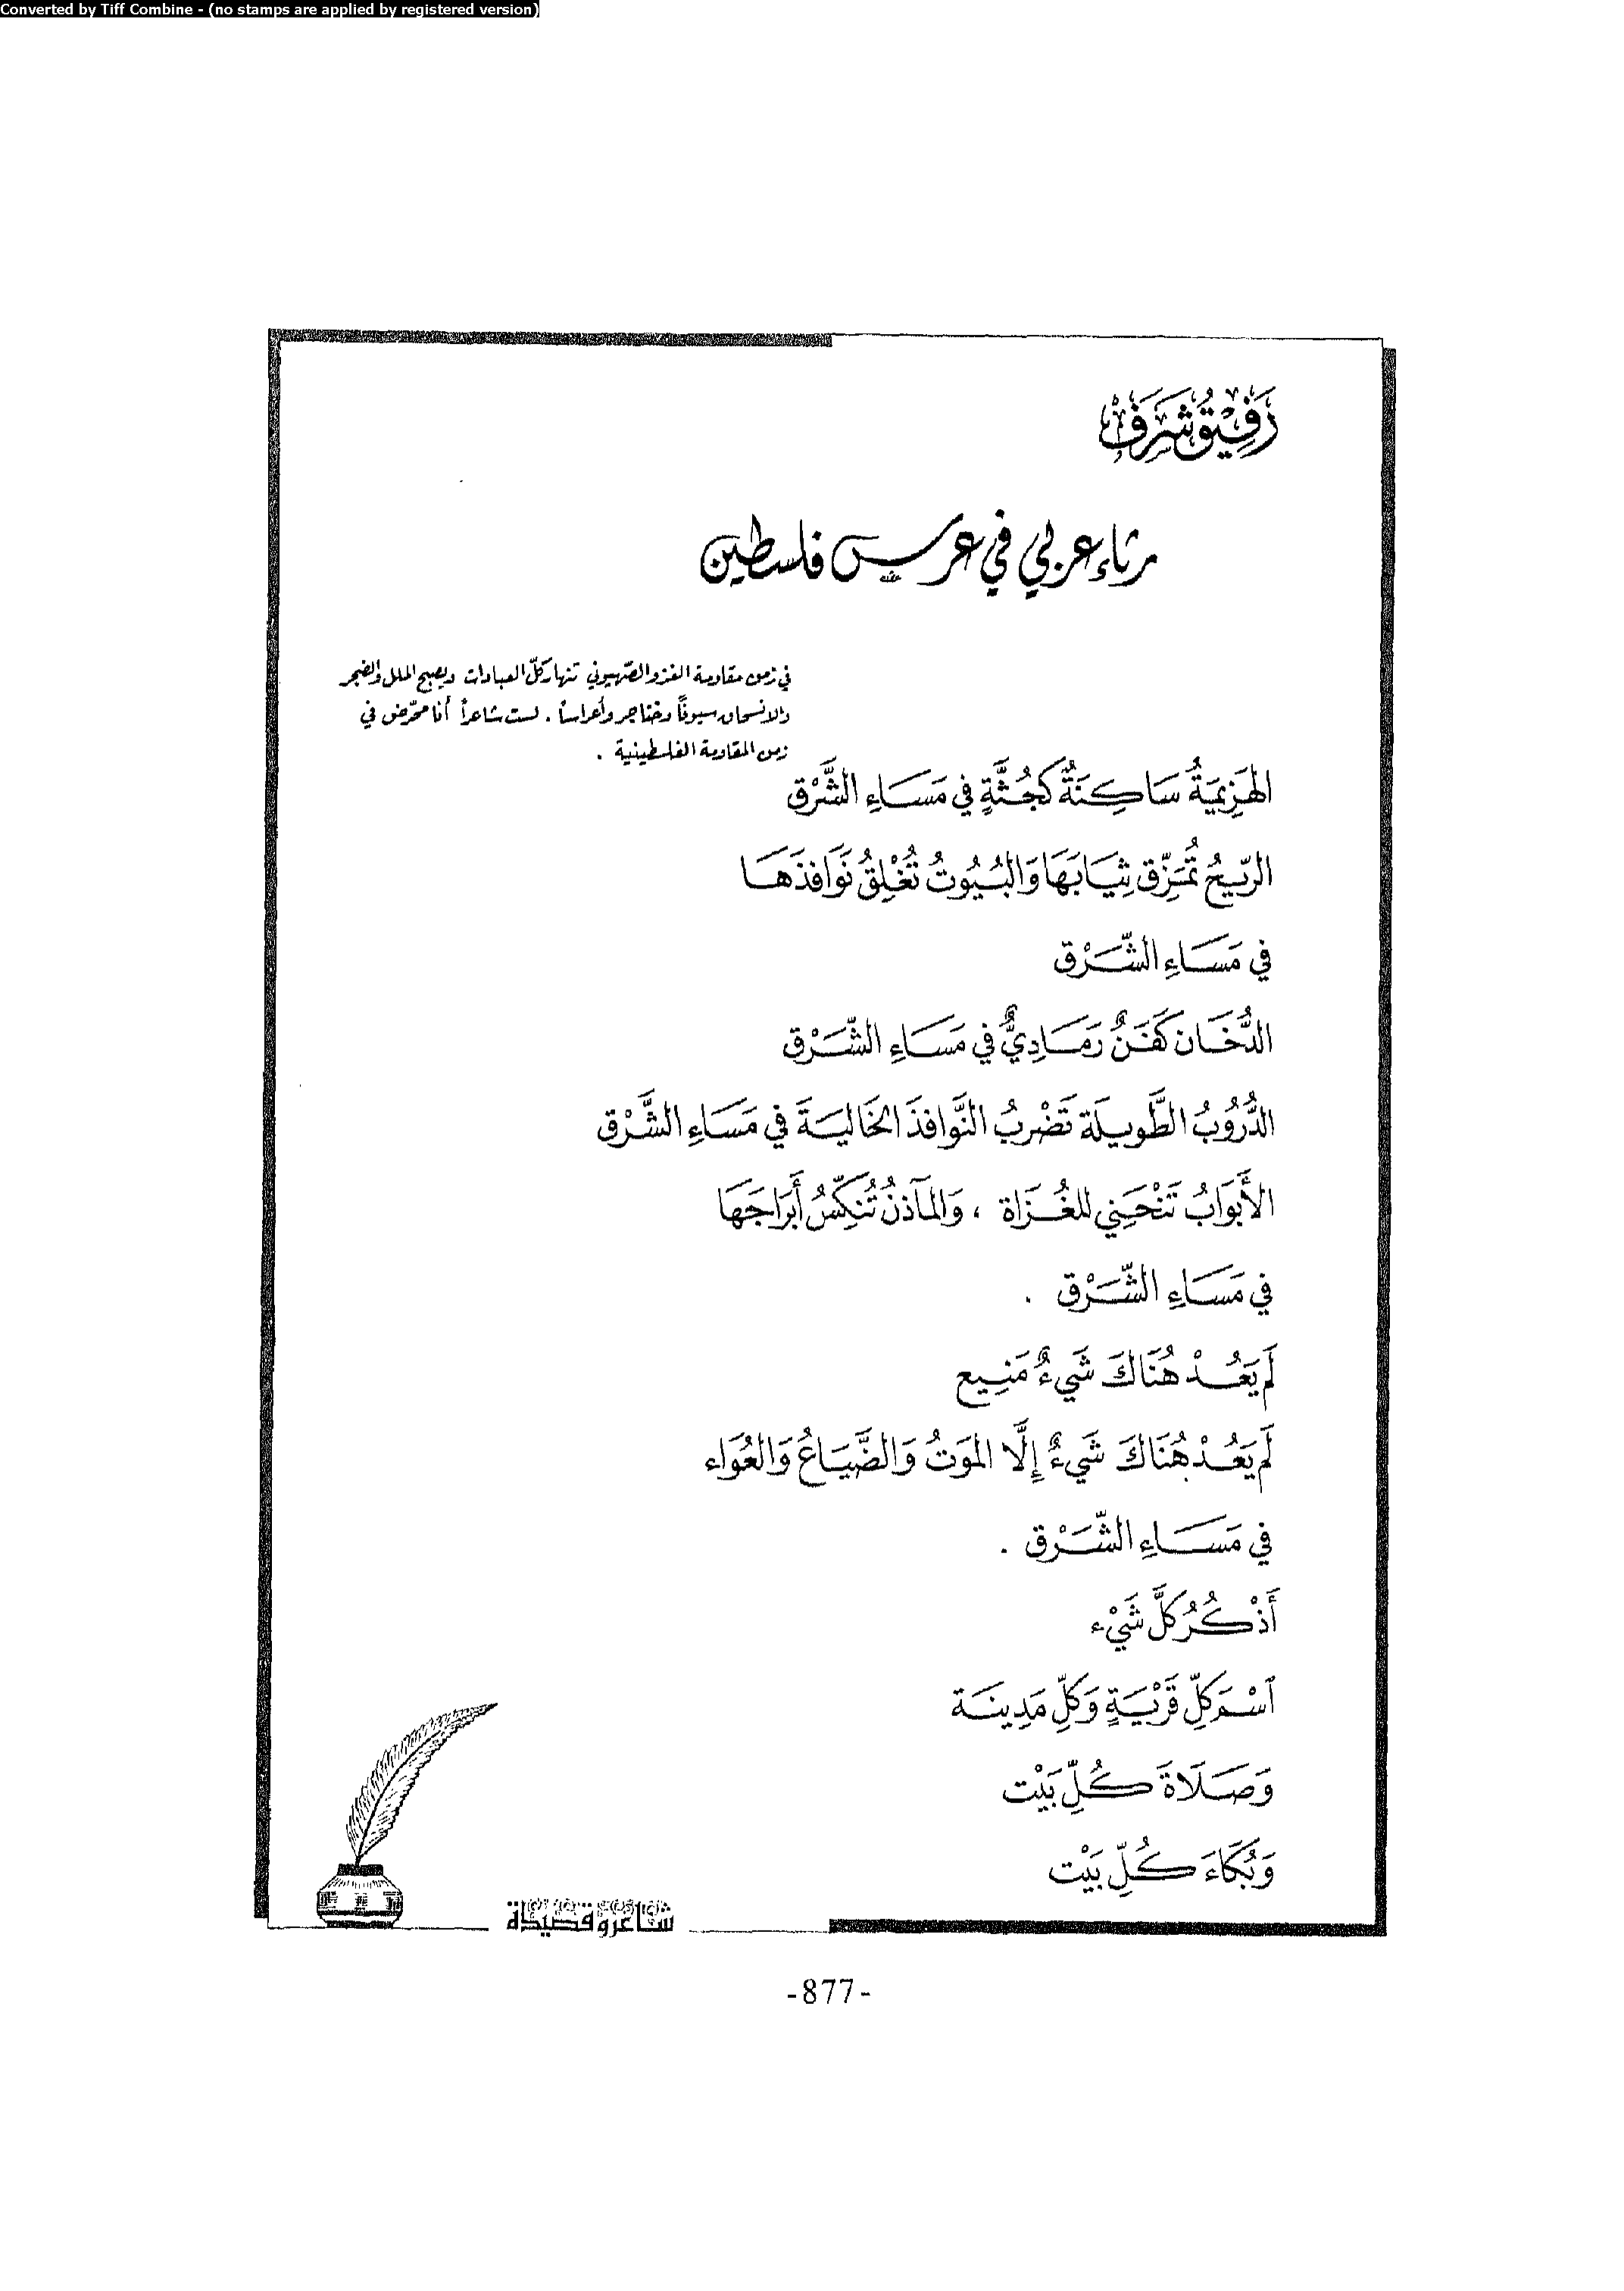 Converted by Tiff Combine - (no stamps are applied by registered version)
رَفِيق شَرَفْ
رثاء عربي في عرس فلسطين
في زمن مقاومة الغزو الصّهيوني تنهار كلّ العبادات ويصبح الملل والضجر
والانسحاق سيوفاً وخناجر وأعراساً . لست شاعراً أنا محرّض في
زمن المقاومة الفلسطينية .
الهَزِيمَةُ سَاكِنَةٌ كَجُثَّةٍ في مَسَاءِ الشَّرْق
الرّيحُ تُمَزِّق ثِيَابَهَا وَالبُيُوتُ تُغْلِقُ نَوَافِذَهَا
في مَسَاءِ الشَّرْق
الدُّخَان كَفَنٌ رَمَادِيٌّ في مَسَاءِ الشَّرْق
الدُّرُوبُ الطَّوِيلَة تَضْرِبُ النَّوافِذَ الخَاليَةَ في مَسَاءِ الشَّرْق
الأَبوَابُ تَنْحَني للغُزَاة ، وَالمآذنُ تُنَكِّسُ أَبرَاجَهَا
في مَسَاءِ الشَّرْق .
لَم يَعُدْ هُنَاكَ شَيءٌ مَنِيع
لَم يَعُدْ هُنَاكَ شَيءٌ إِلَّا المَوتُ وَالضَّيَاعُ وَالعُوَاء
في مَسَاءِ الشَّرْق .
أَذْكُرُ كلَّ شَيْء
ٱسْمَ كلِّ قَرْيَةٍ وَكلِّ مَدِينَة
وَصَلَاةَ كُلِّ بَيْت
وَبُكَاءَ كُلِّ بَيْت
شاعر وقصيدة
-877-